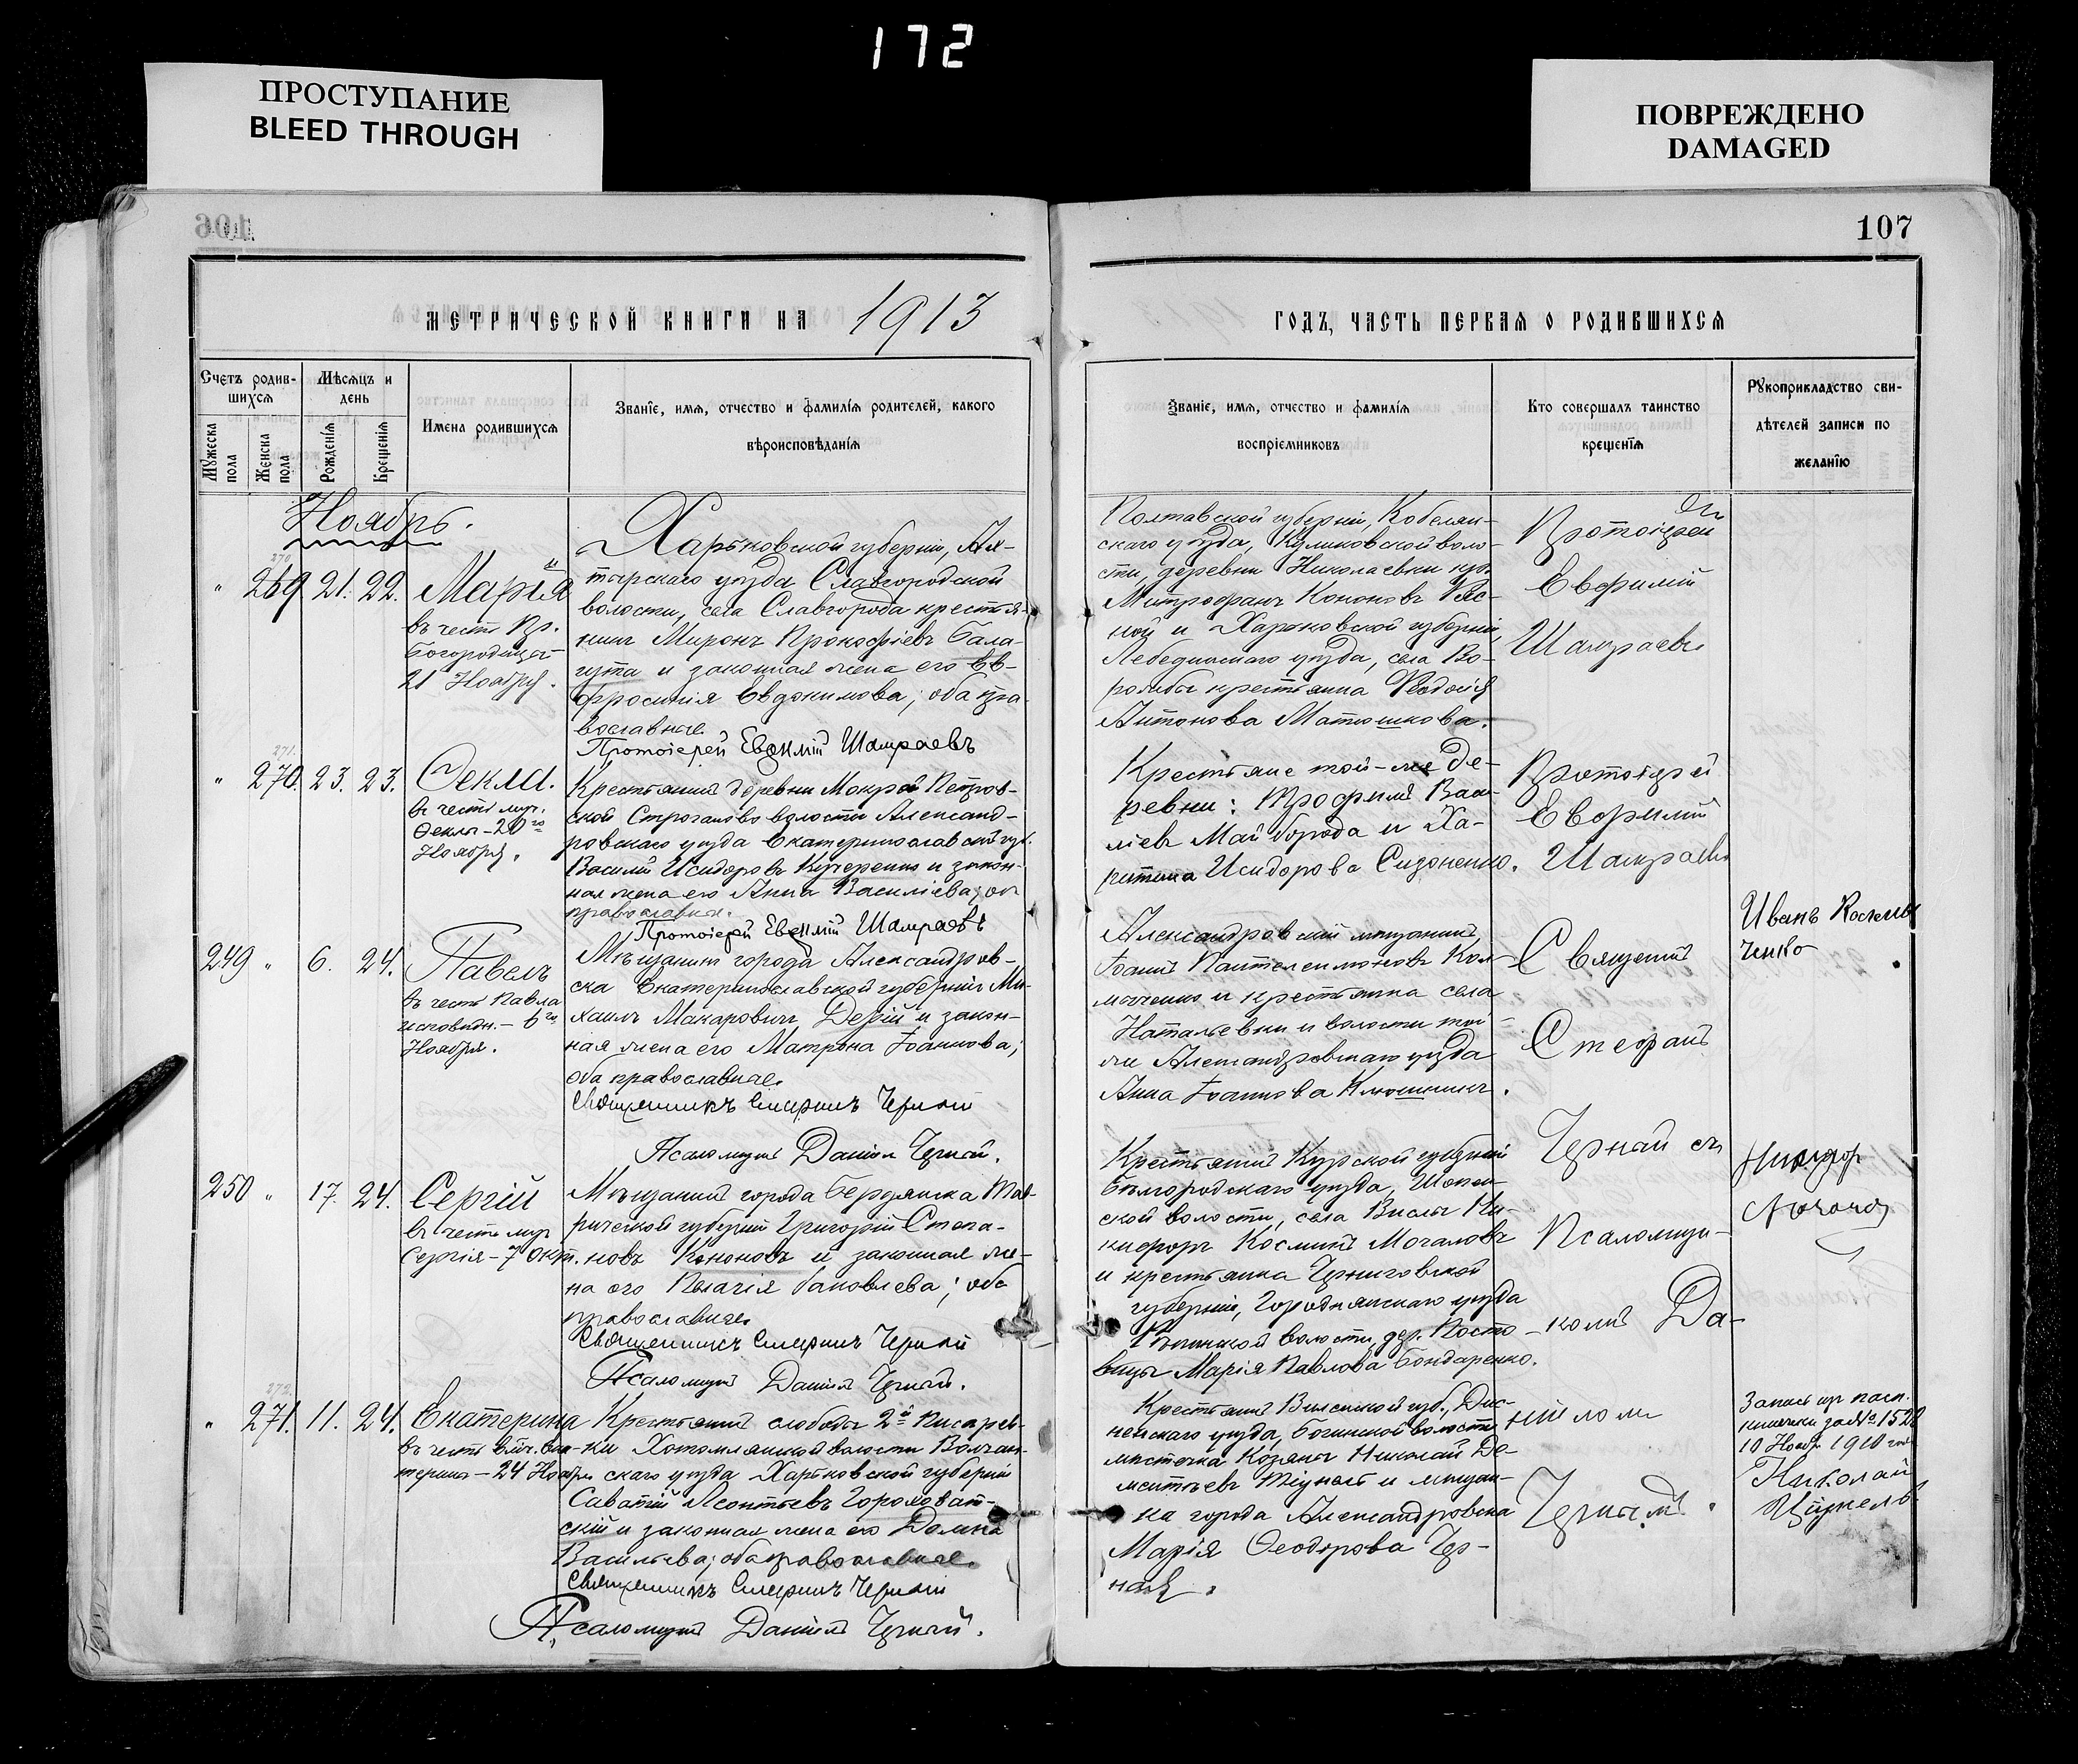 172
ПРОСТУПАНИЕ
BLEED THROUGH
ПОВРЕЖДЕНО
DAMAGED
106
107
МЕТРИЧЕСКОЙ КНИГИ НА 1913
ГОДЪ, ЧАСТЬ ПЕРВАЯ О РОДИВШИХСЯ
Счетъ родив-
шихся
Мѣсяцъ и
день
Мужеска
пола
Женска
пола
Рожденія
Крещенія
Имена родившихся
Званіе, имя, отчество и фамилія родителей, какого
вѣроисповѣданія
Званіе, имя, отчество и фамилія
воспріемниковъ
Кто совершалъ таинство
крещенія
Рукоприкладство сви-
дѣтелей записи по
желанію
Ноябрь.
270
" 269 21. 22. Марія
въ честь Пр.
Богородицы
21 Ноября.
Харьковской губерніи, Ах-
тырскаго уѣзда Славгородской
волости, села Славгорода крестья-
нинъ Миронъ Прокофіевъ Бала-
гута и законная жена его Ев-
фросинія Евдокимова; оба пра-
вославные.
Протоіерей Евфимій Шамраевъ
Полтавской губерніи, Кобеляк-
скаго уѣзда, Куликовской воло-
сти, деревни Николаевки кр.
Митрофанъ Кононовъ
и Харьковской губерніи,
Лебединскаго уѣзда, села Во-
рожбы крестьянка Ѳеодосія
Антонова Матюшкова.
Протоіерей
Евфимій
Шамраевъ
271.
" 270. 23. 23. Ѳекла.
въ честь муч.
Ѳеклы - 20го
Ноября.
Крестьянинъ деревни Мокрой Петров-
ской Строгановс волости Александ-
ровскаго уѣзда Екатеринославской губ.
Василій Исидоровъ Кучеренко и закон-
ная жена его Анна Василіева; оба
православные.
Протоіерей Евфимій Шамраевъ
Крестьяне той-же де-
ревни: Трофимъ Васи-
ліевъ Майборода и Ха-
ритина Исидорова Сидоненко.
Протоіерей
Евфимій
Шамраевъ
249 " 6. 24. Павелъ
въ честь Павла
исповѣдн. - 6го
Ноября.
Мѣщанинъ города Александров-
ска Екатеринославской губерніи Ми-
хаилъ Макаровичъ Дерій и закон-
ная жена его Матрона Іоаннова;
оба православные.
Священникъ Стефанъ Черный
Псаломщикъ Даніилъ Черный.
Александровскій мѣщанинъ
Іоаннъ Пантелеимоновъ Кол-
и крестьянка села
Натальевки и волости той-
же Александровскаго уѣзда
Анна Іоаннова
Священникъ
Стефанъ
Черный съ
Иванъ
ченко
250 " 17. 24. Сергій
въ честь муч
Сергія - 7 Окт.
Мѣщанинъ города Бердянска Тав-
рической губерніи Григорій Степа-
новъ Кононовъ и законная же-
на его Пелагія Іаковлева; оба
православные.
Священникъ Стефанъ Черный
Псаломщикъ Даніилъ Черный.
Крестьянинъ Курской губерніи
Бѣлгородскаго уѣзда, Шопин-
ской волости, села Вислы Ни-
кифоръ Космичъ Мочаловъ
и крестьянка Черниговской
губерніи, Городнянскаго уѣзда
волости, дер.
Марія Павлова Бондаренко.
Псаломщи-
комъ Да-
Никифор
272.
" 271. 11. 24. Екатерина
въ честь влмч. Ека-
терины - 24 Ноября
Крестьянинъ слободы 2й Писарев-
ки Хотомлянской волости Волчан-
скаго уѣзда Харьковской губерніи
Саватій Леонтьевъ Гороховат-
скій и законная жена его Домна
Васильева; оба православные.
Священникъ Стефанъ Черный
Псаломщикъ Даніилъ Черный.
Крестьянинъ Виленской губ., Дис-
ненскаго уѣзда, Богинской волости
мѣстечка Козяны Николай Де-
ментьевъ и мѣщан-
ка города Александровска
Марія Ѳеодорова Чер-
ная.
ніиломъ
Чернымъ.
10 Ноября 1910 года
Николай